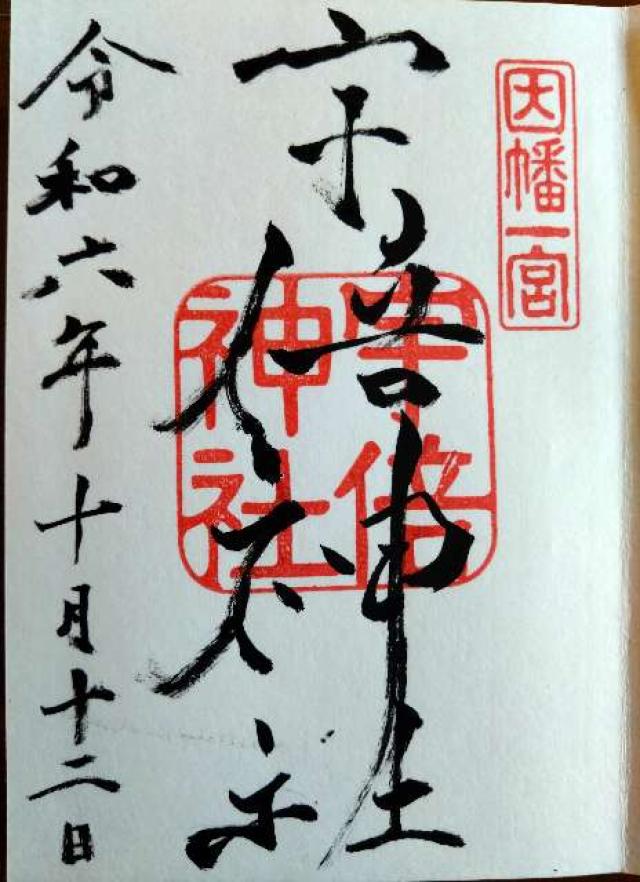 因幡一宮
宇倍神社
宇倍神社
令和六年十月十二日